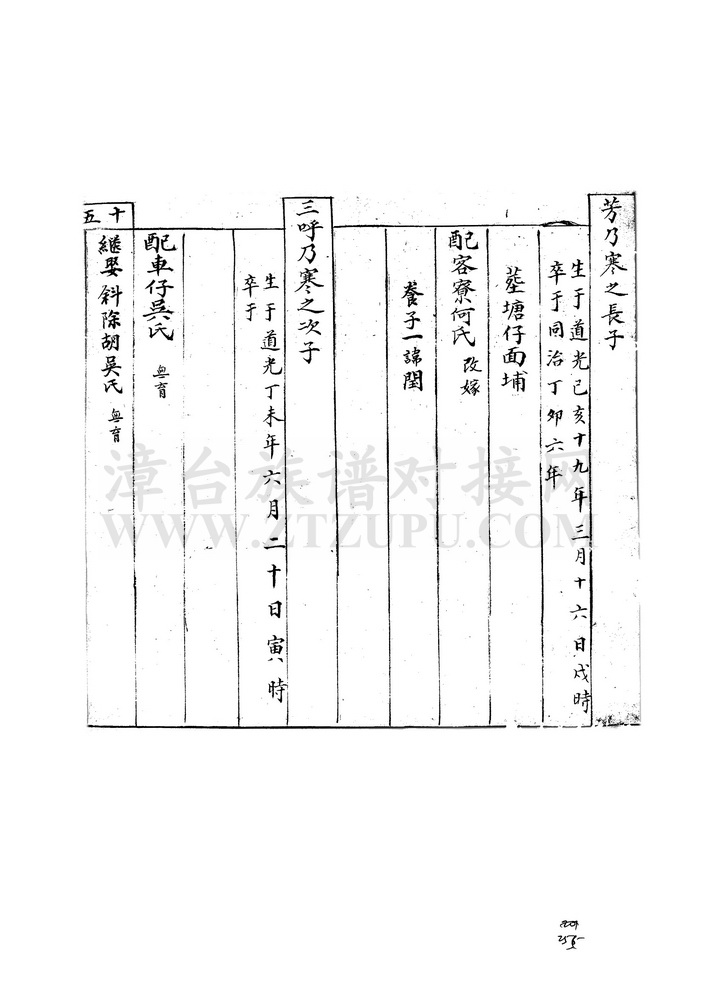 芳乃寒之長子
生于道光己亥十九年三月十六日戌時
卒于同治丁卯六年
墓塘仔面埔
配客寮何氏 改嫁
養子一諱閏
三呼乃寒之次子
生于道光丁未年六月二十日寅時
卒于
配車仔吳氏 無育
繼娶斜除胡吳氏 無育
十五
漳台族谱对接网
WWW.ZTZUPU.COM